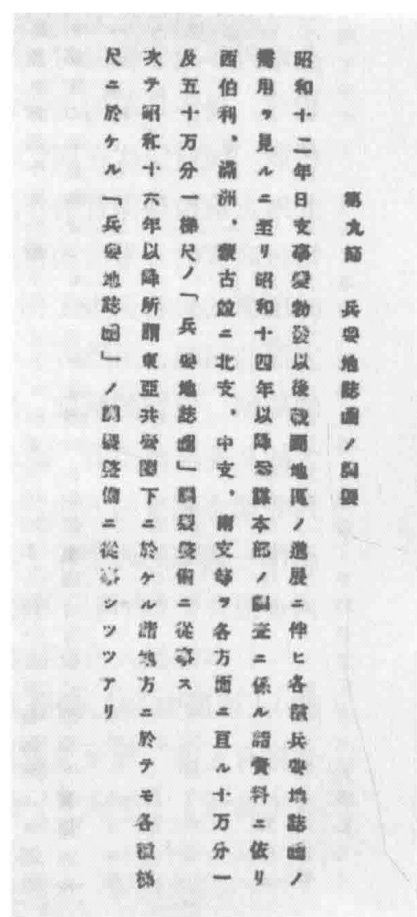 第九節 兵要地誌圖ノ調製
昭和十二年日支事變勃發以後戰鬪地區ノ進展ニ伴ヒ各種兵要地誌圖ノ
需用ヲ見ルニ至リ昭和十四年以降參謀本部ノ調査ニ係ル諸資料ニ依リ
西伯利、滿洲、蒙古竝ニ北支、中支、南支等ヲ各方面ニ亘ル十万分一
及五十万分一梯尺ノ「兵要地誌圖」調製整備ニ從事ス
次テ昭和十六年以降所謂東亞共榮圈下ニ於ケル諸地方ニ於テモ各種梯
尺ニ於ケル「兵要地誌圖」ノ調製整備ニ從事シツツアリ